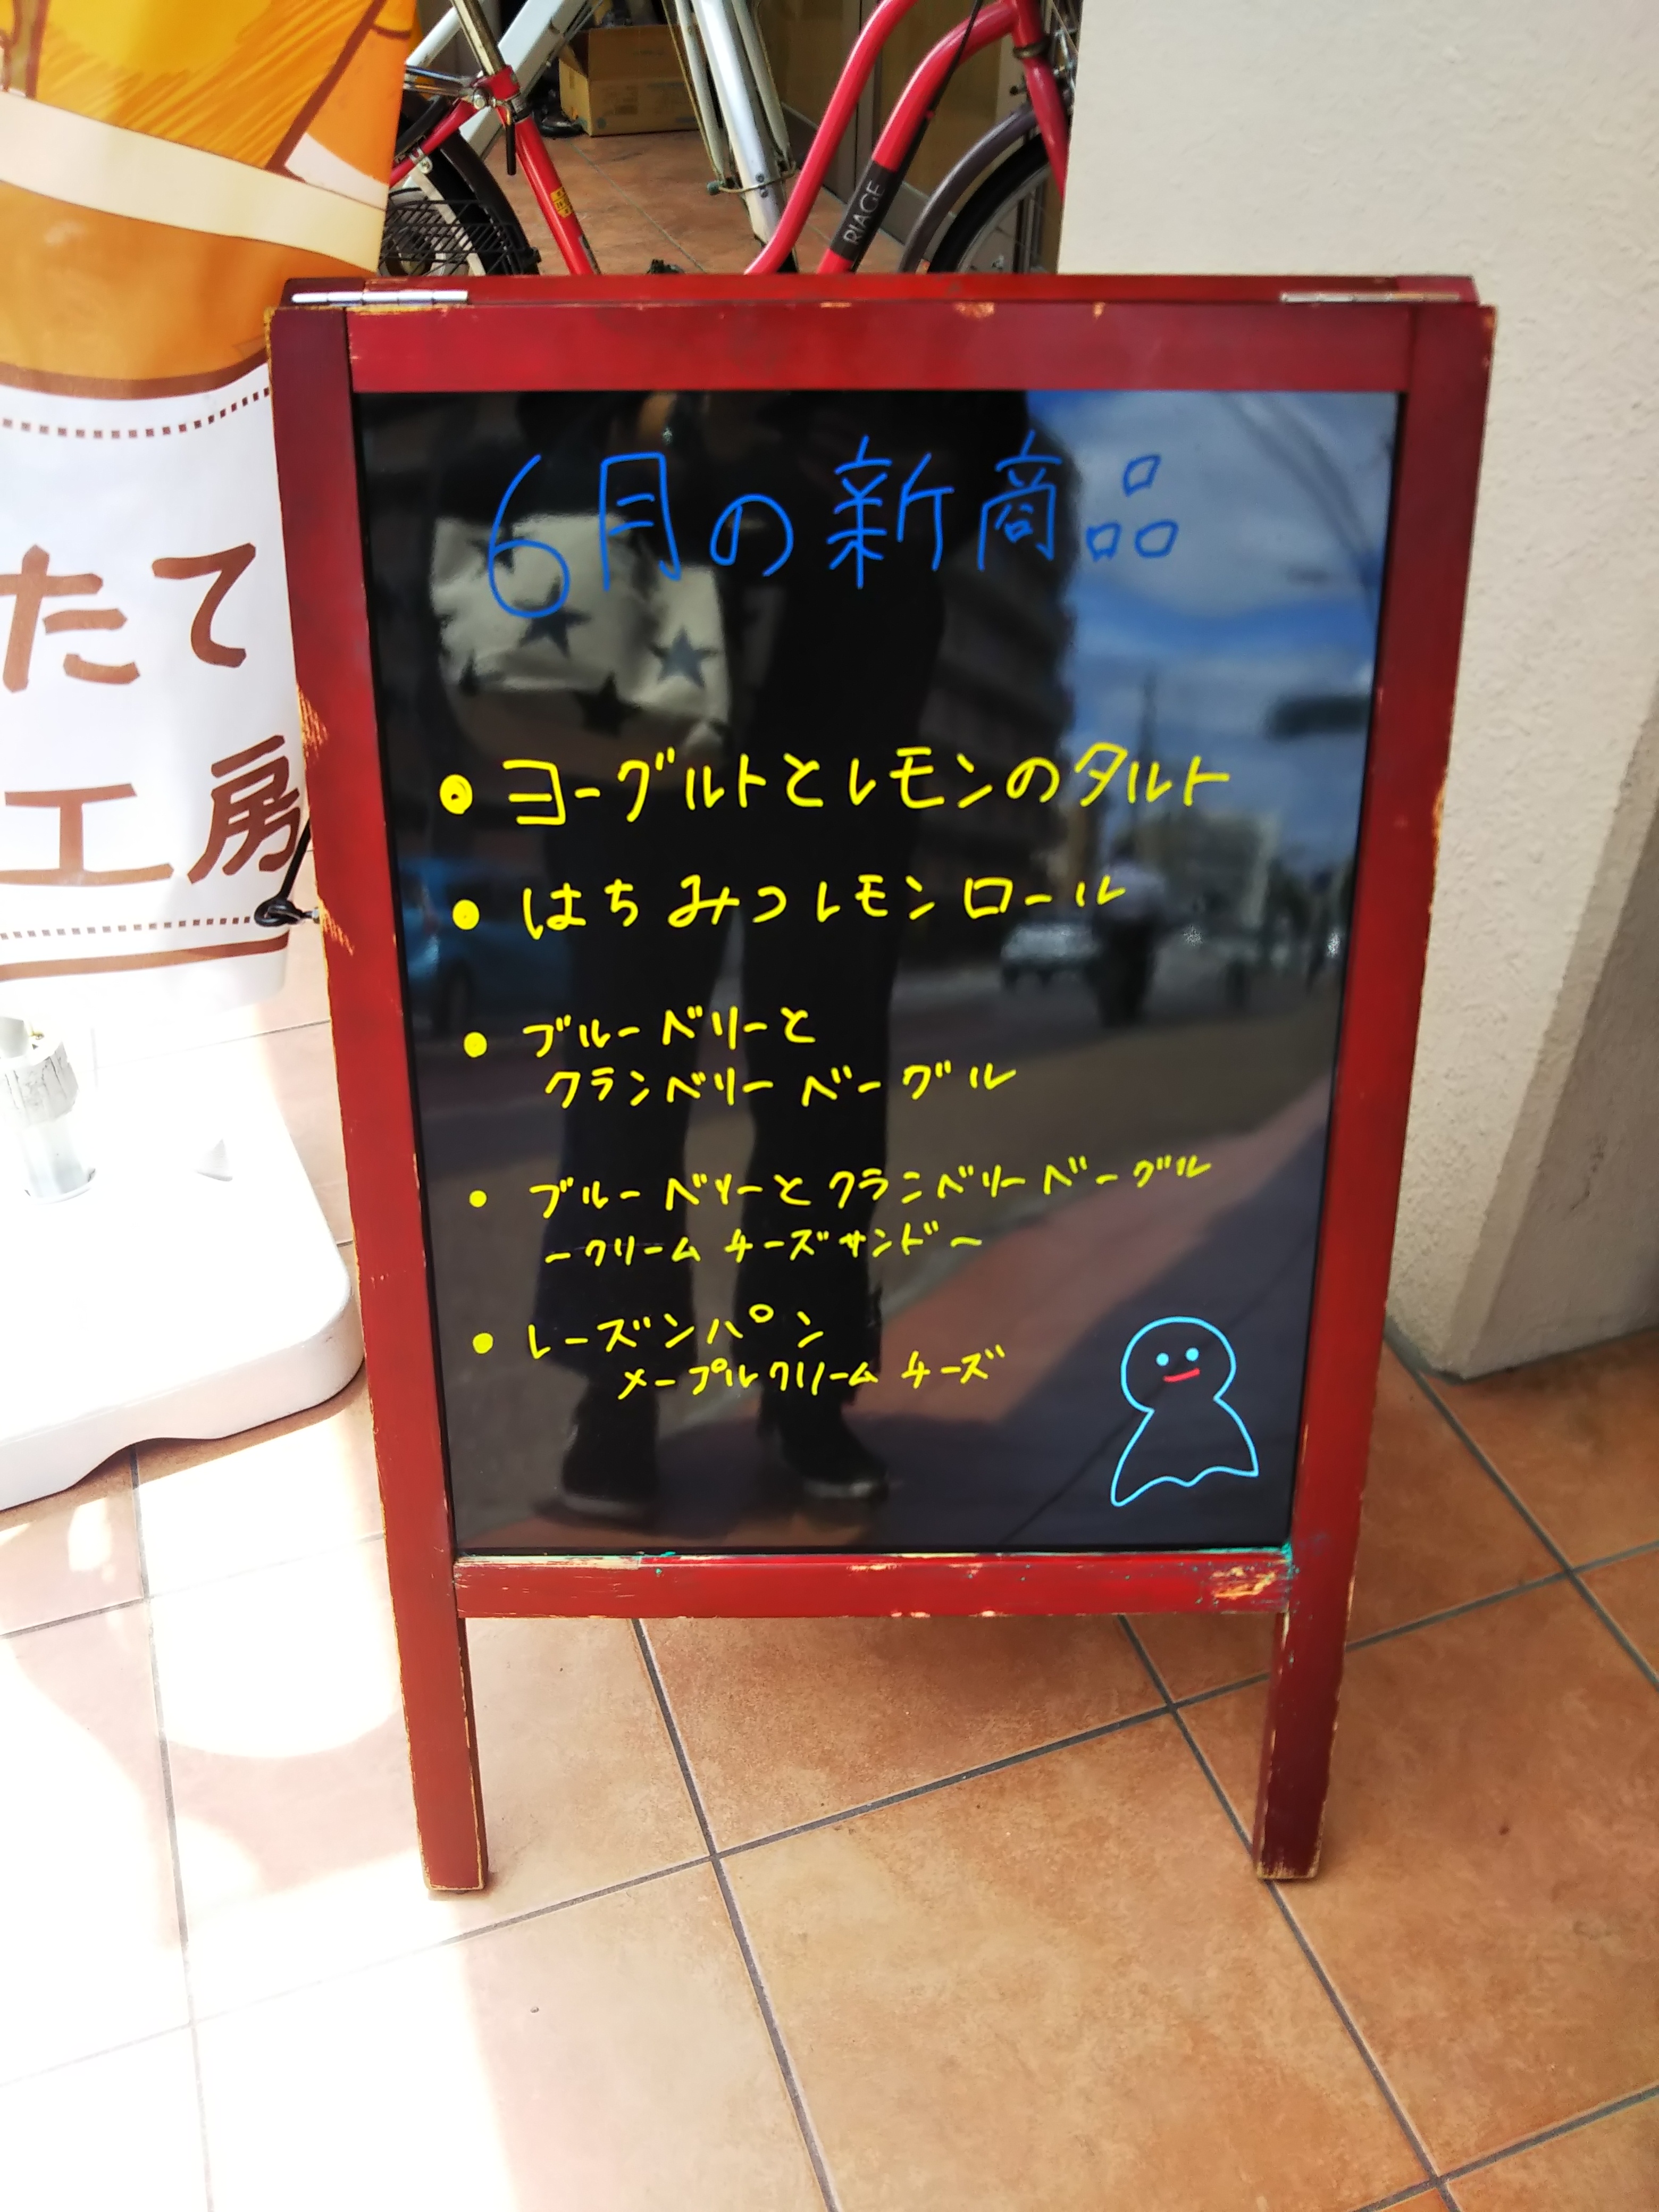 RIAGE
たて
工房
6月の新商品
• ヨーグルトとレモンのタルト
• はちみつレモンロール
• ブルーベリーと
クランベリーベーグル
• ブルーベリーとクランベリーベーグル
～クリームチーズサンド～
• レーズンパン
メープルクリームチーズ